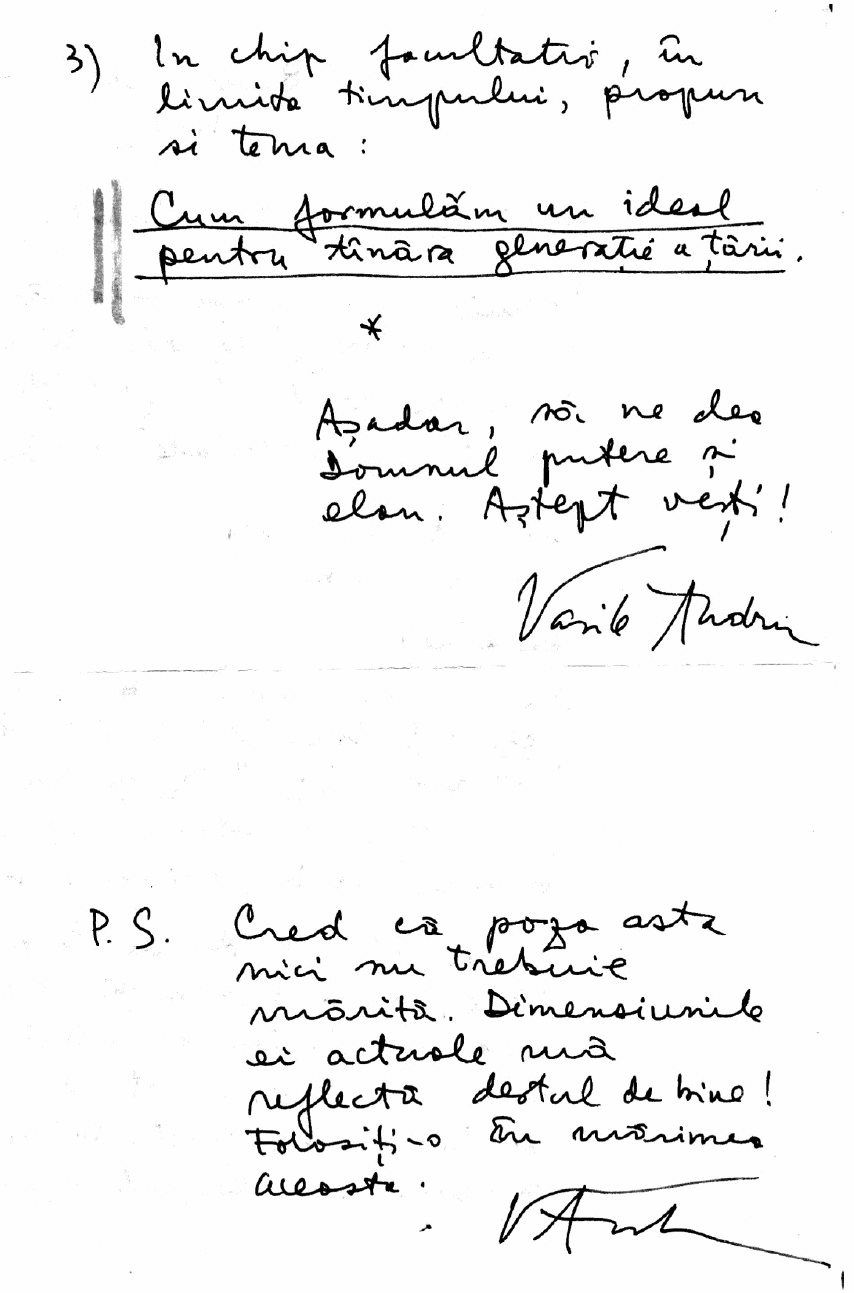 3) In chip facultativ, în
limita timpului, propun
si tema :
Cum formulăm un ideal
pentru tînăra generație a țării.
*
Așadar, să ne dea
Domnul putere și
elan. Aștept vești!
Vasile Andru
P.S. Cred că poza asta
nici nu trebuie
mărită. Dimensiunile
ei actuale mă
reflectă destul de bine!
Folosiți-o în mărimea
aceasta.
VAndru